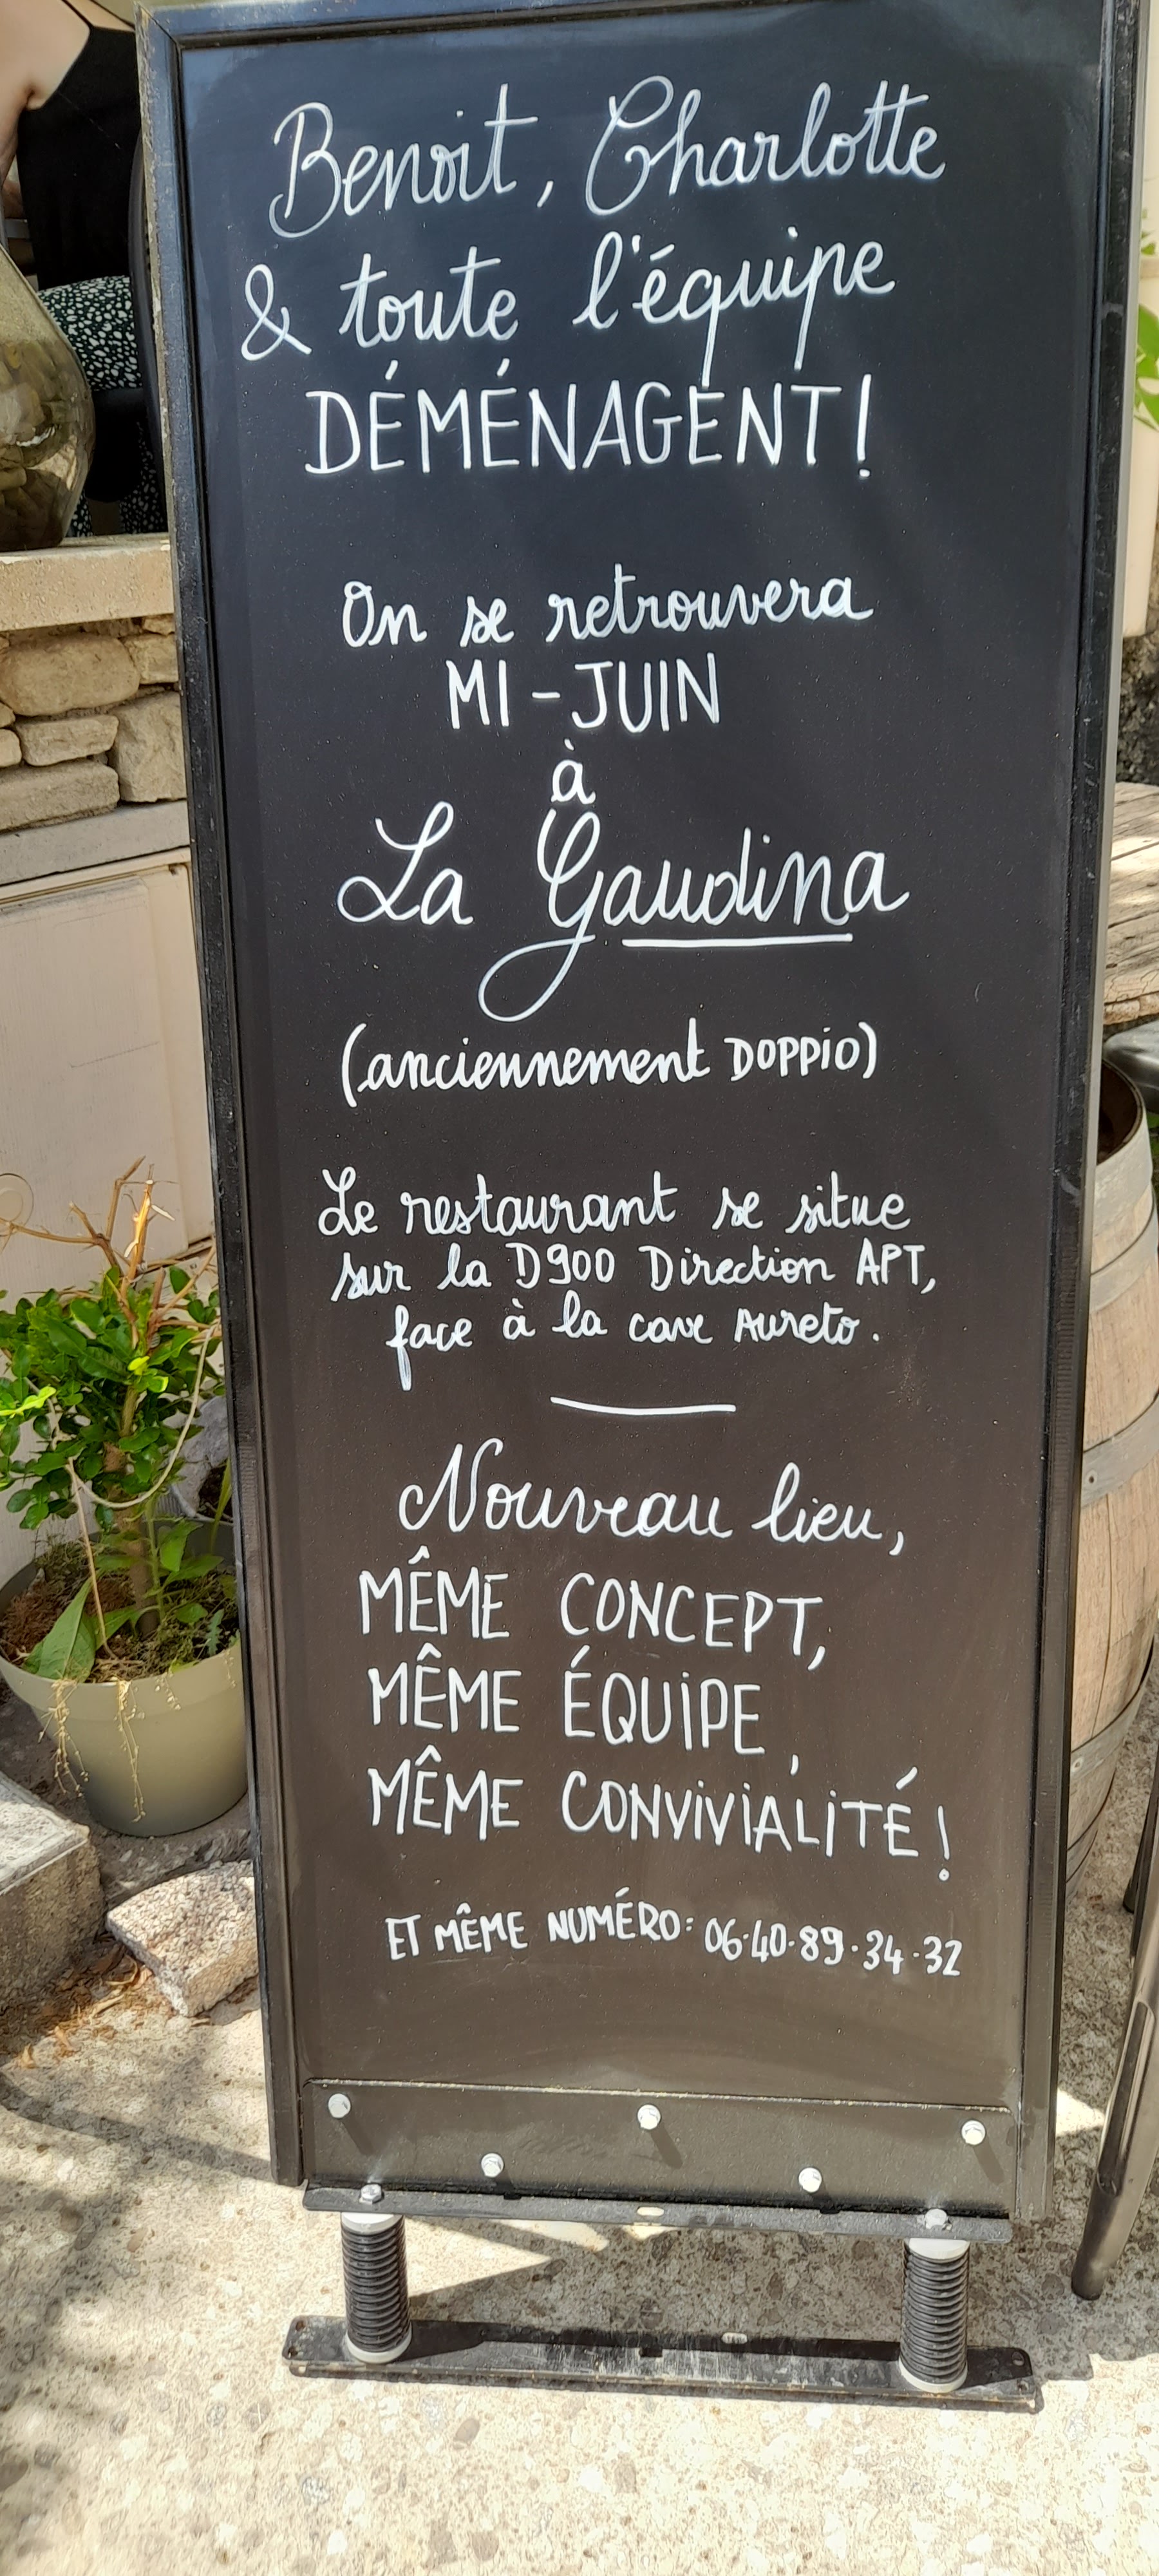 Benoit, Charlotte
& toute l'équipe
DÉMÉNAGENT!
On se retrouvera
MI-JUIN
à
La Gaudina
(anciennement DOPPIO)
Le restaurant se situe
sur la D900 Direction APT,
face à la cave Aureto.
Nouveau lieu,
MÊME CONCEPT,
MÊME ÉQUIPE,
MÊME CONVIVIALITÉ!
ET MÊME NUMÉRO: 06·40·89·34·32